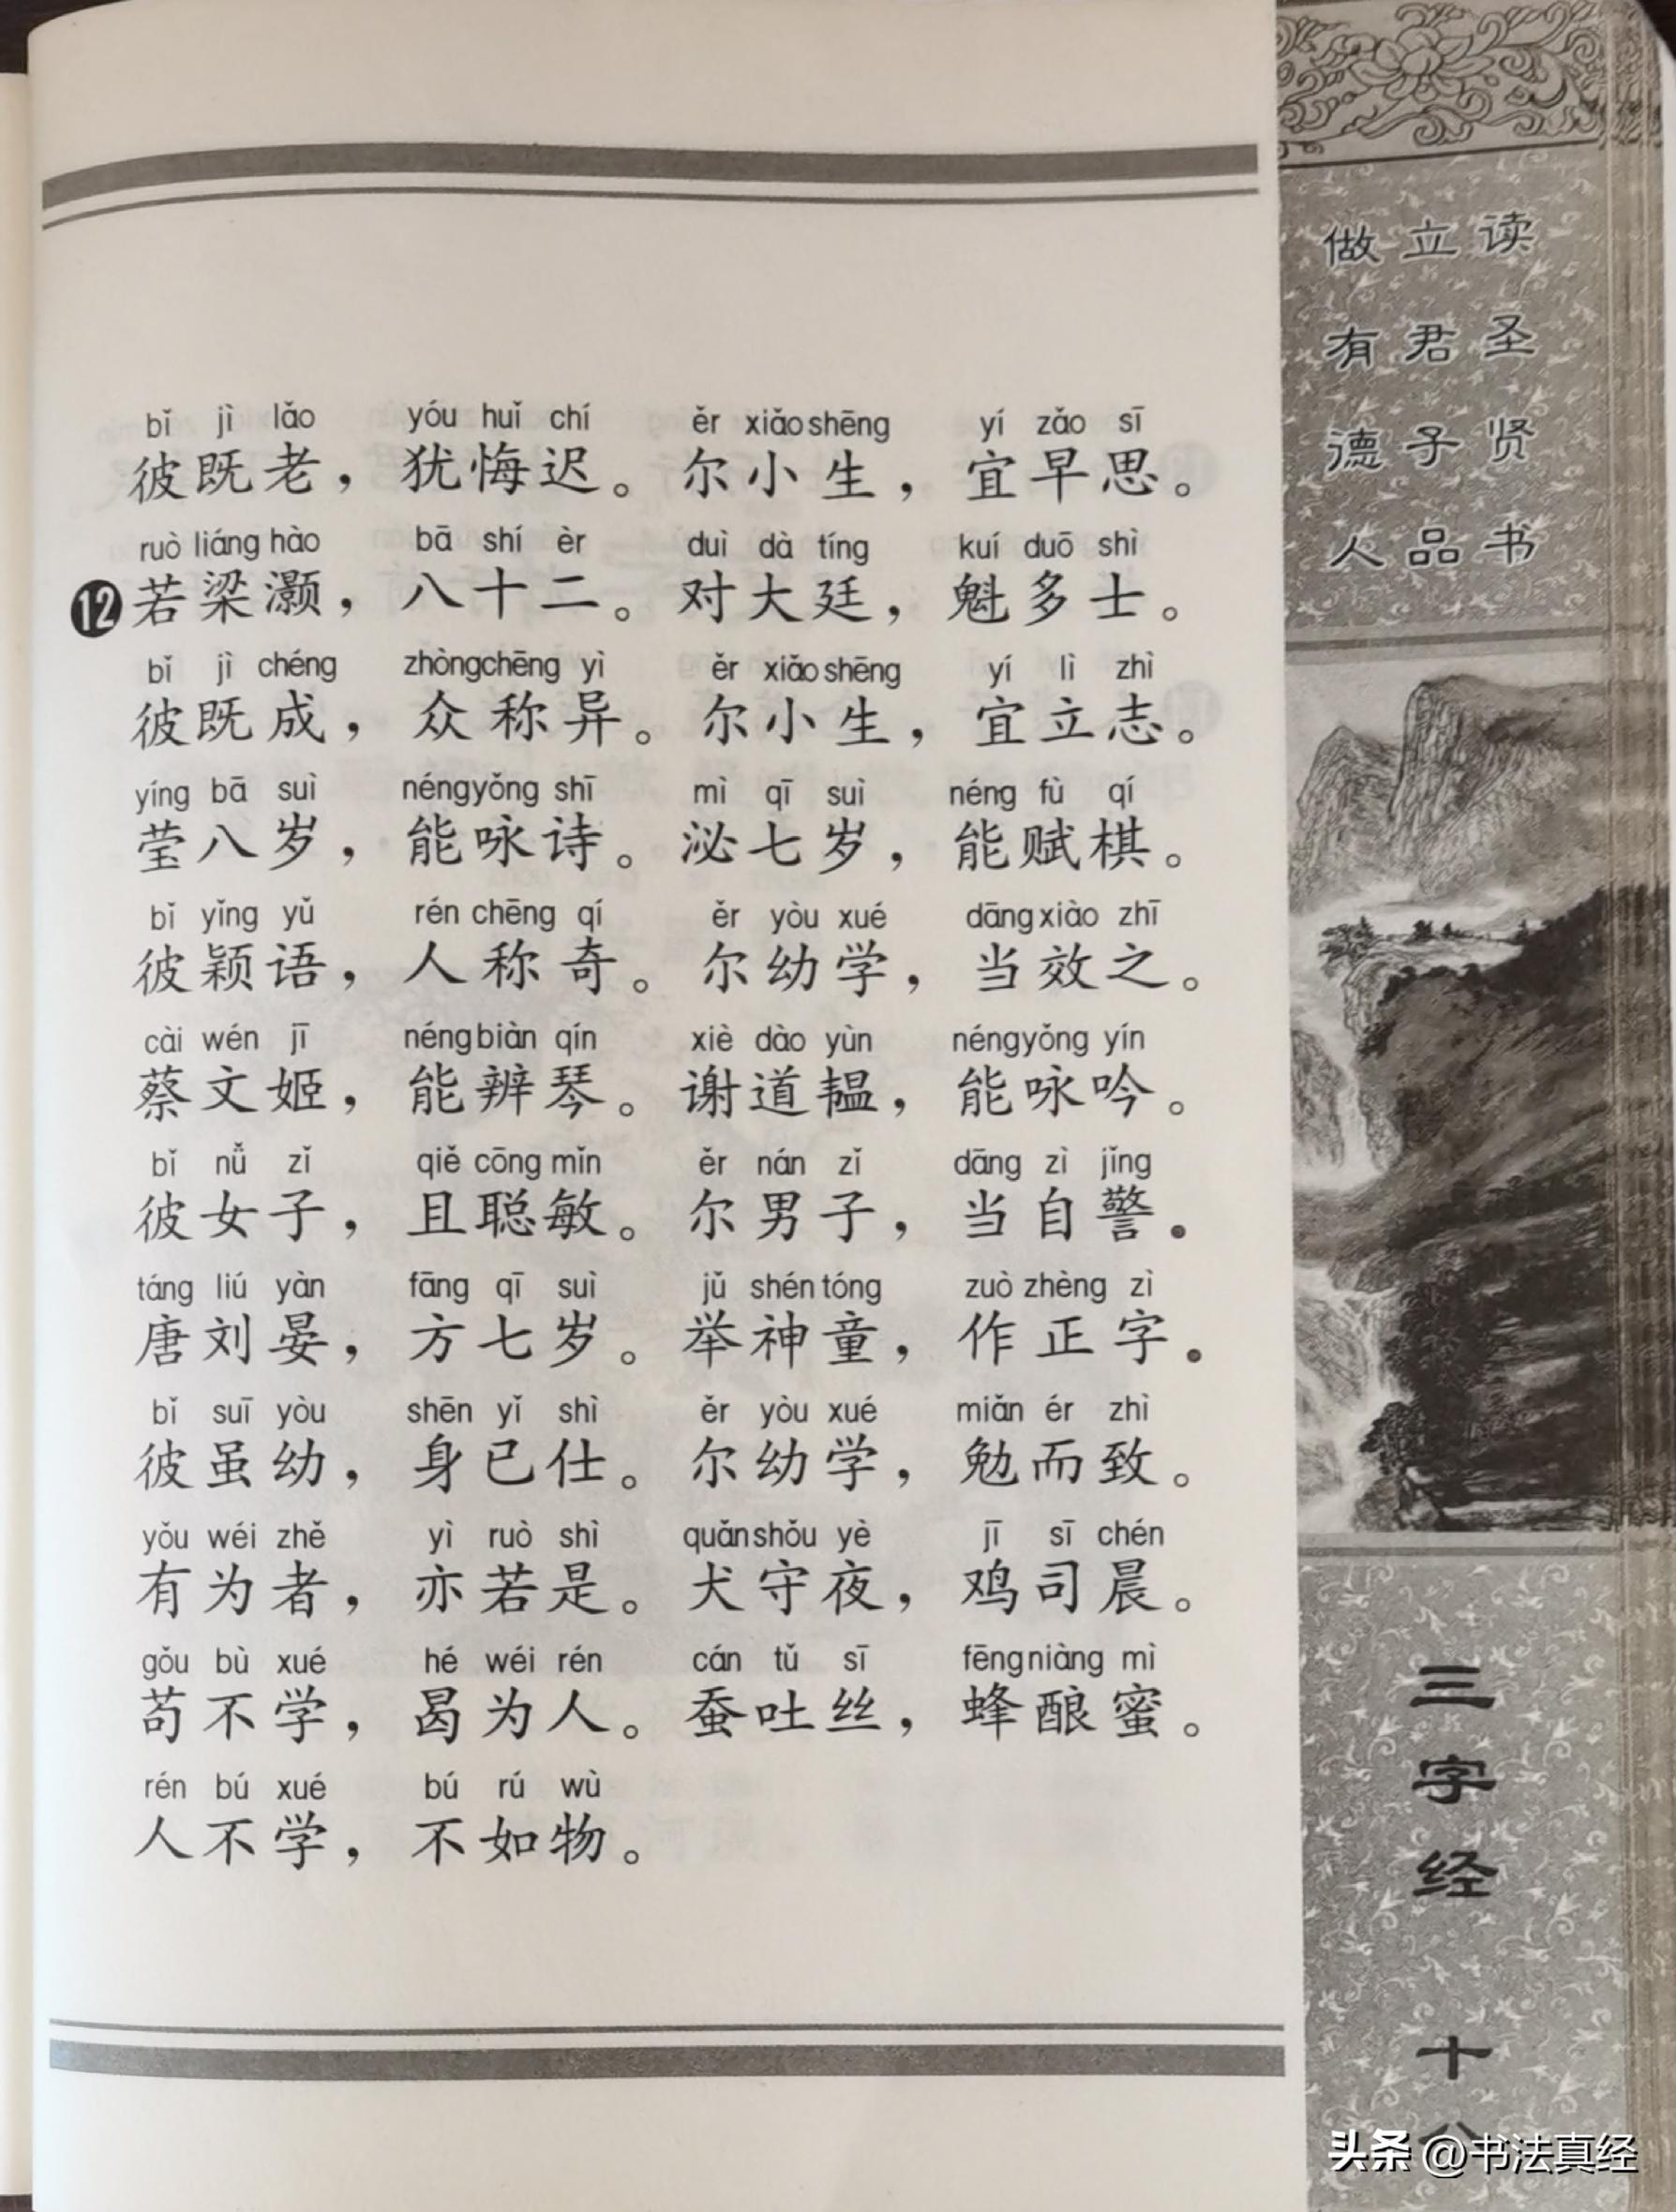 bǐ jì lǎo yóu huǐ chí ěr xiǎo shēng yí zǎo sī
彼既老，犹悔迟。尔小生，宜早思。
ruò liáng hào bā shí èr duì dà tíng kuí duō shì
⓬若梁灏，八十二。对大廷，魁多士。
bǐ jì chéng zhòng chēng yì ěr xiǎo shēng yí lì zhì
彼既成，众称异。尔小生，宜立志。
yíng bā suì néng yǒng shī mì qī suì néng fù qí
莹八岁，能咏诗。泌七岁，能赋棋。
bǐ yǐng yǔ rén chēng qí ěr yòu xué dāng xiào zhī
彼颖语，人称奇。尔幼学，当效之。
cài wén jī néng biàn qín xiè dào yùn néng yǒng yín
蔡文姬，能辨琴。谢道韫，能咏吟。
bǐ nǚ zǐ qiě cōng mǐn ěr nán zǐ dāng zì jǐng
彼女子，且聪敏。尔男子，当自警。
táng liú yàn fāng qī suì jǔ shén tóng zuò zhèng zì
唐刘晏，方七岁。举神童，作正字。
bǐ suī yòu shēn yǐ shì ěr yòu xué miǎn ér zhì
彼虽幼，身已仕。尔幼学，勉而致。
yǒu wéi zhě yì ruò shì quǎn shǒu yè jī sī chén
有为者，亦若是。犬守夜，鸡司晨。
gǒu bù xué hé wéi rén cán tǔ sī fēng niàng mì
苟不学，曷为人。蚕吐丝，蜂酿蜜。
rén bú xué bú rú wù
人不学，不如物。
读圣贤书
立君子品
做有德人
三字经
十八
头条 @书法真经